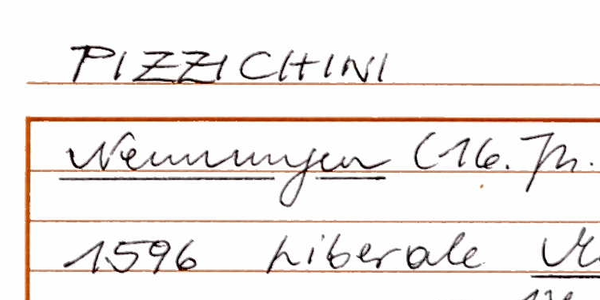 PIZZICHINI
Nennungen (16. Jh.
1596 Liberale